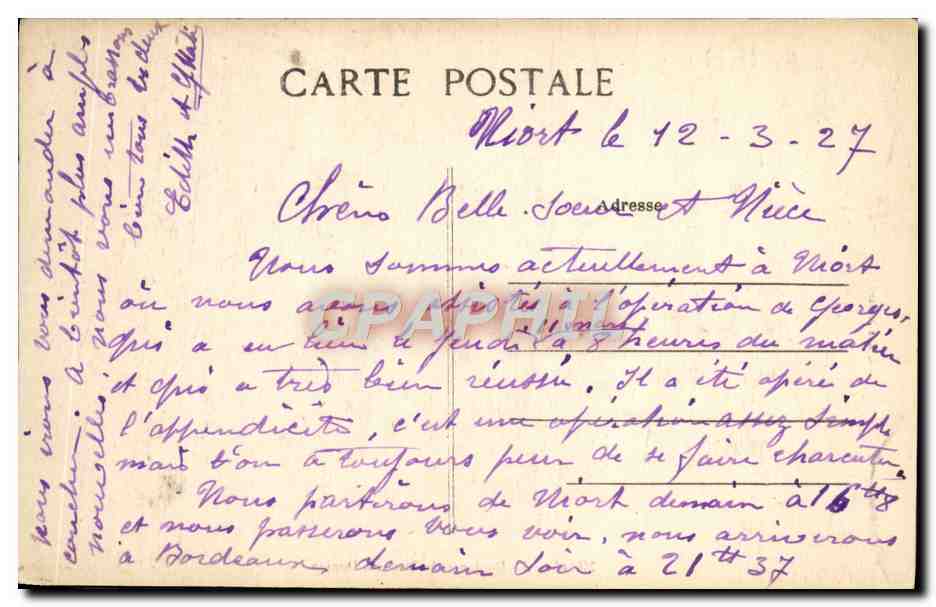 CARTE POSTALE
Niort le 12 - 3. 27
Adresse
Chères Belle-soeur et Nièce
Nous sommes actuellement à Niort
où nous avons assisté à l'opération de Georges,
qui a eu lieu le jeudi 11 mars à 8 heures du matin
et qui a très bien réussi. Il a été opéré de
l'appendicite, c'est une opération assez simple
mais l'on a toujours peur de se faire charcuter.
Nous partirons de Niort demain à 16 H 8
et nous passerons vous voir, nous arriverons
à Bordeaux demain soir à 21 H 37
nous irons vous demander à
coucher. A bientôt plus amples
nouvelles, nous vous embrassons
bien tous les deux
Edith et
CPAPHIL